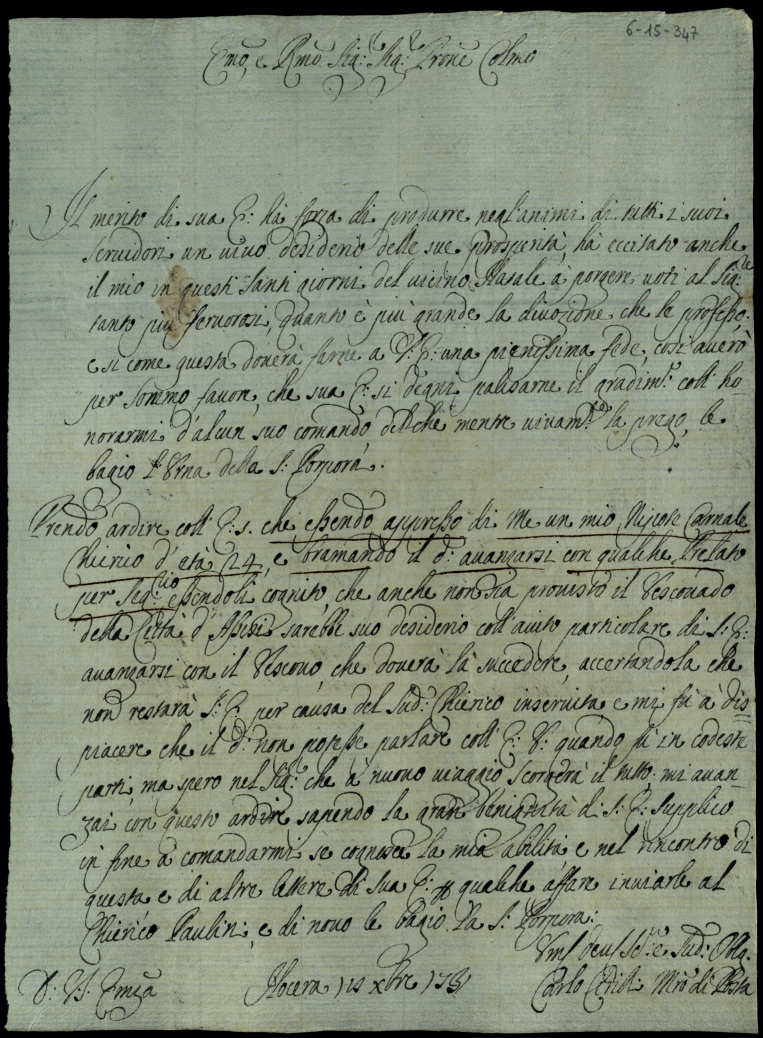 6-15-347
Emo, e Rmo Sig: Sig: Prone Colmo
Il merito di sua E: hà forza di produrre negl'animi di tutti i suoi
servidori un vivo desiderio delle sue prosperità, hà eccitato anche
il mio in questi santi giorni del vicino Natale à porgere voti al Sig:re
tanto più fervorosi, quanto è più grande la divozione che le professo:
e si come questa doverà farne a V: E: una pienissima fede, così averò
per sommo favore, che sua E: si degni palisarne il gradimto coll' ho-
norarmi d'alcun suo comando del che mentre vivamte la prego, le
bagio l'Urna della S: Porpora.
Prendo ardire coll' E: S. che essendo appresso di me un mio Nipote Carnale
Chierico d'età 24, e bramando il d: avanzarsi con qualche Prelato
per Seg:rio essendoli cognito che anche non sia provisto il Vescovado
della Città d'Assisi sarebbe suo desiderio coll' aiuto particolare di S: E:
avanzarsi con il Vescovo che doverà là succedere, accertandola che
non restarà S: E: per causa del sud: Chierico inservita e mi fù à dis=
piacere che il d: non potesse parlare coll' E: V: quando fù in codeste
parti, ma spero nel Sig: che à nuovo viaggio scorgerà il tutto: mi avan-
zai con questo ardire sapendo la gran benignità di S: E: supplico
in fine à comandarmi se cognosce la mia abilità e nel rincontro di
questa e di altre lettere di sua E: p qualche affare inviarle al
Chierico Paulini, e di novo le bagio la S: Porpora:
Uml devs Se: e Sud: Obg.
D: V. Emza Nocera xbre Carlo Mro di Posta